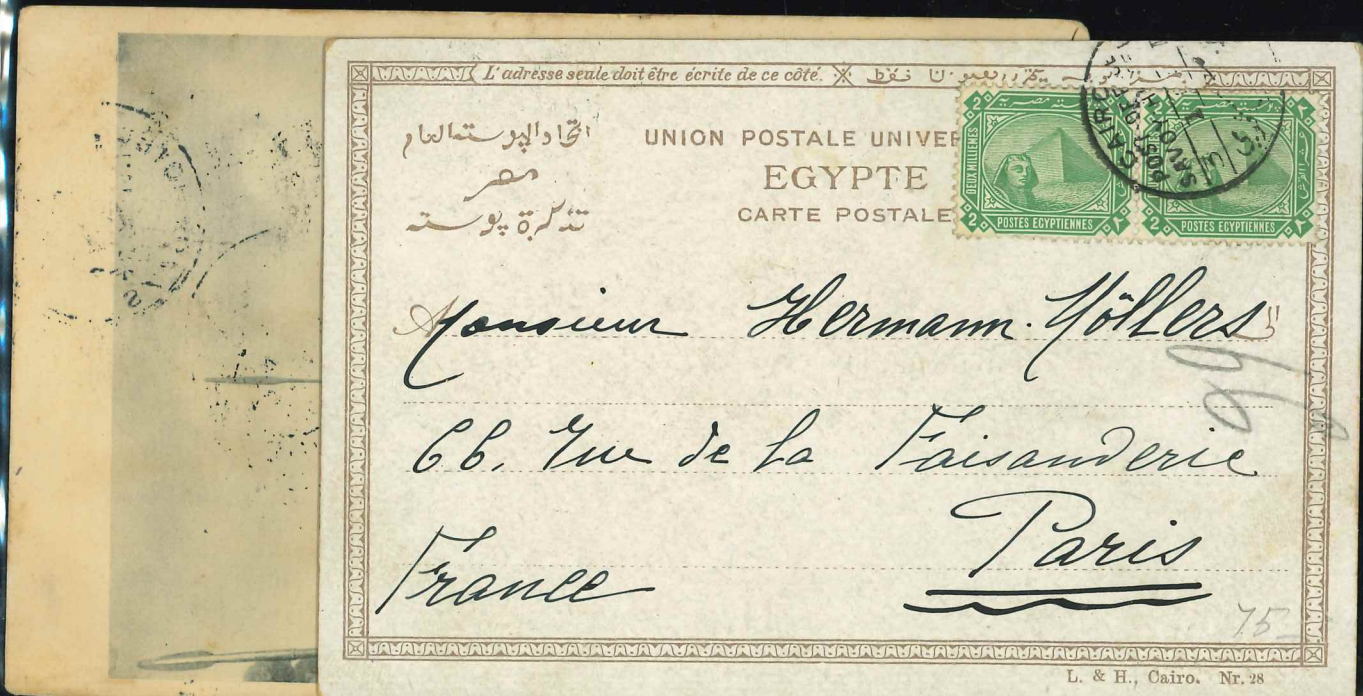 L'adresse seule doit être écrite de ce côté.
فقط
اتحاد البوسته العام
UNION POSTALE UNIVE
مصر
EGYPTE
تذكرة بوسته
CARTE POSTALE
2 2
DEUX MILLIEMES
2 POSTES EGYPTIENNES ٢
2 POSTES EGYPTIENNES ٢
CAIRO
Monsieur Hermann Möllers
66, Rue de la Faisanderie
Paris
France
75
L. & H., Cairo. Nr. 28